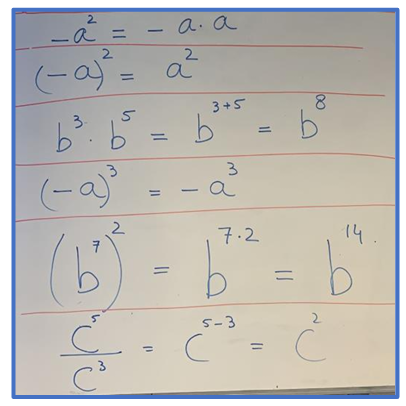 -a² = - a · a
(-a)² = a²
b³ · b⁵ = b³⁺⁵ = b⁸
(-a)³ = -a³
(b⁷)² = b⁷·² = b¹⁴
c⁵/c³ = c⁵⁻³ = c²